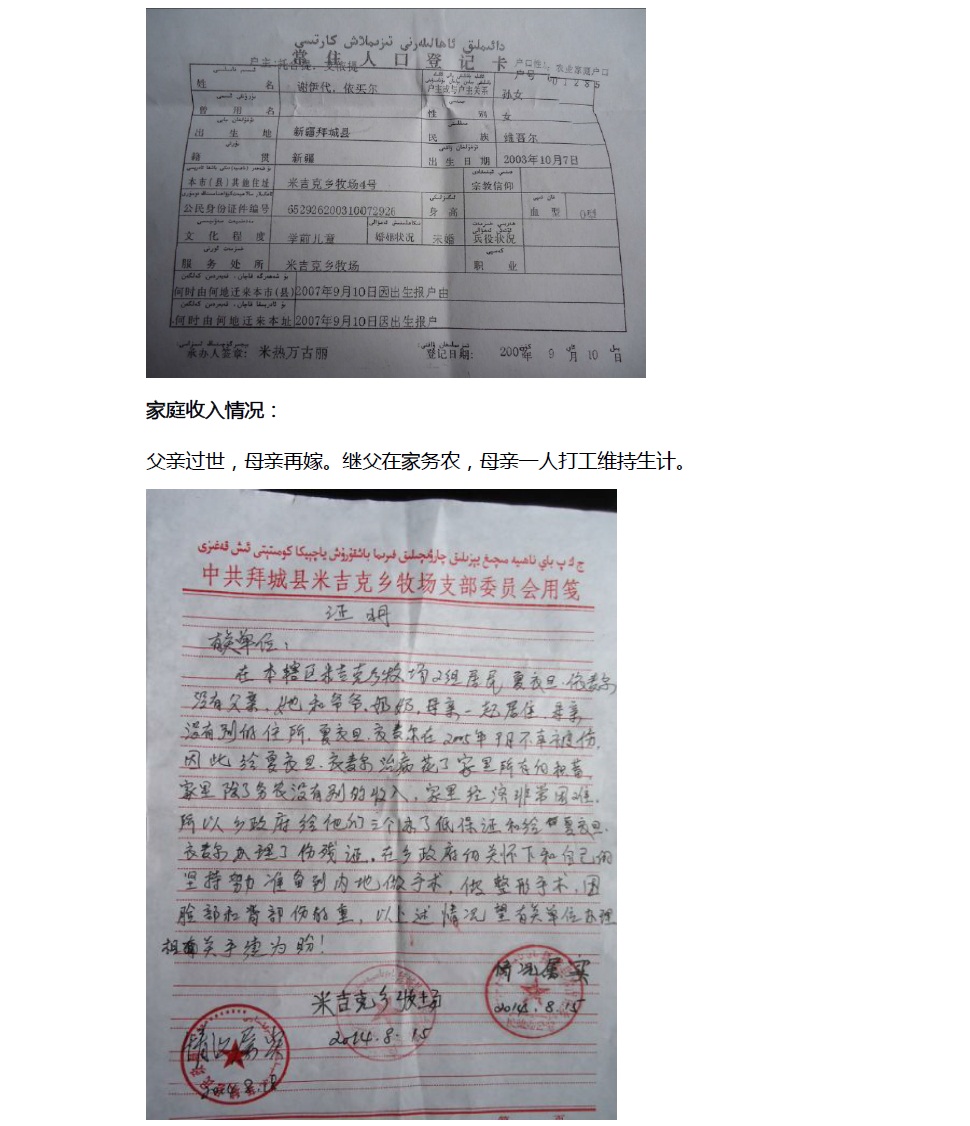 دائىملىق ئاھالىلەرنى تىزىملاش كارتىسى
常 住 人 口 登 记 卡
户口性: 农业家庭户口
户主 托合提．艾依提
户号 001285
姓 名 谢伊代．依买尔 户主或与户主关系 孙女
曾 用 名 性 别 女
出 生 地 新疆拜城县 民 族 维吾尔
籍 贯 新疆 出 生 日 期 2003年10月7日
本市(县)其他住址 米吉克乡牧场4号 宗教信仰
公民身份证件编号 652926200310072926 身 高 血 型 O型
文 化 程 度 学前儿童 婚姻状况 未婚 兵役状况
服 务 处 所 米吉克乡牧场 职 业
何时由何地迁来本市(县) 2007年9月10日因出生报户由
何时由何地迁来本址 2007年9月10日因出生报户
承办人签章: 米热万古丽 登记日期: 2007年 9 月 10 日
家庭收入情况：
父亲过世，母亲再嫁。继父在家务农，母亲一人打工维持生计。
中共拜城县米吉克乡牧场支部委员会用笺
证 明
有关单位：
在本辖区米吉克乡牧场2组居民 夏衣旦·依麦尔
没有父亲，她和爷爷，奶奶，母亲一起居住，母亲
没有别低住所，夏衣旦·衣麦尔在2005年9月不幸被伤，
因此给夏衣旦·衣麦尔治病花了家里所有的积蓄，
家里除了务农没有别的收入，家里经济非常困难，
所以乡政府给他们三个办了低保证和给 夏衣旦·
衣麦尔办理了伤残证，在乡政府的关怀下和自己的
坚持努力准备到内地做手术，做整形手术，因
脸部和背部伤的重，以上述情况望有关单位办理
相关手续为盼！
情况属实
米吉克乡牧场
2014.8.15
2014.8.15
情况属实